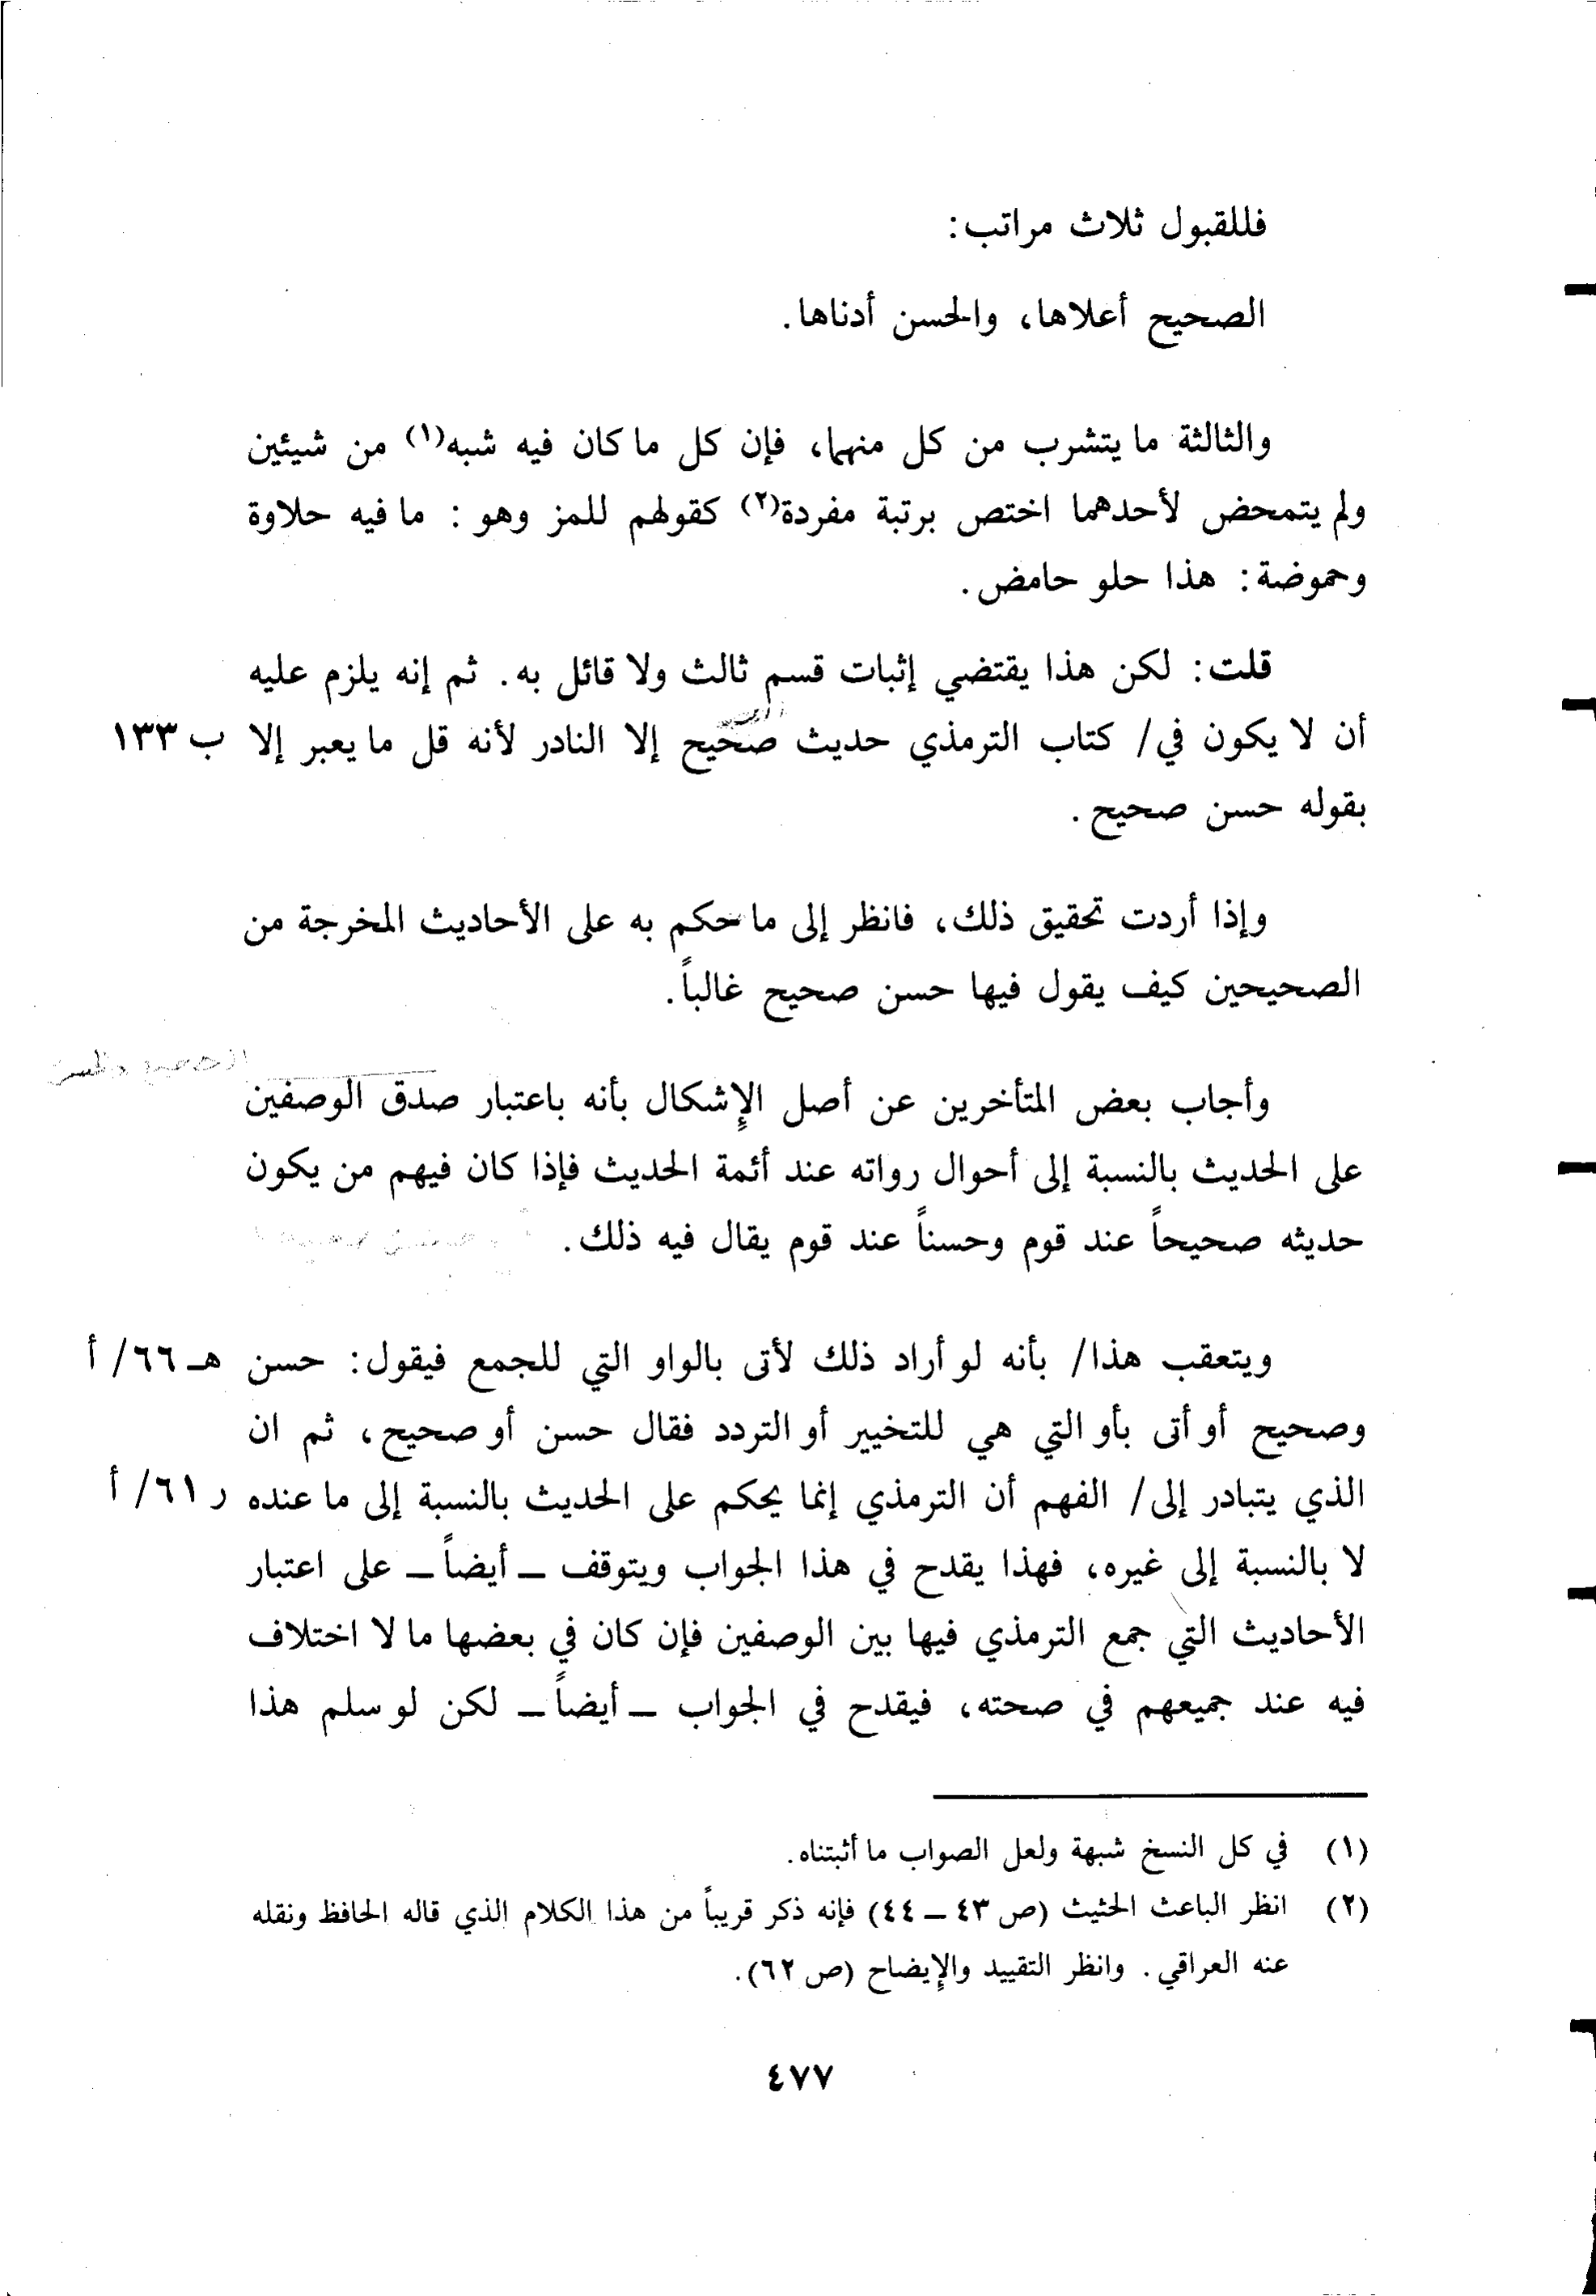 فللقبول ثلاث مراتب:
الصحيح أعلاها، والحسن أدناها.
والثالثة ما يتشرب من كل منهما، فإن كل ما كان فيه شبه(١) من شيئين
ولم يتمحض لأحدهما اختص برتبة مفردة(٢) كقولهم للمز وهو: ما فيه حلاوة
وحموضة: هذا حلو حامض.
قلت: لكن هذا يقتضي إثبات قسم ثالث ولا قائل به. ثم إنه يلزم عليه
أن لا يكون في/ كتاب الترمذي حديث صحيح إلا النادر لأنه قل ما يعبر إلا ب ١٣٣
بقوله حسن صحيح.
وإذا أردت تحقيق ذلك، فانظر إلى ما حكم به على الأحاديث المخرجة من
الصحيحين كيف يقول فيها حسن صحيح غالباً.
وأجاب بعض المتأخرين عن أصل الإِشكال بأنه باعتبار صدق الوصفين
على الحديث بالنسبة إلى أحوال رواته عند أئمة الحديث فإذا كان فيهم من يكون
حديثه صحيحاً عند قوم وحسناً عند قوم يقال فيه ذلك.
ويتعقب هذا/ بأنه لو أراد ذلك لأتى بالواو التي للجمع فيقول: حسن هـ ٦٦/ أ
وصحيح أو أتى بأو التي هي للتخيير أو التردد فقال حسن أو صحيح، ثم ان
الذي يتبادر إلى/ الفهم أن الترمذي إنما يحكم على الحديث بالنسبة إلى ما عنده ر ٦١/ أ
لا بالنسبة إلى غيره، فهذا يقدح في هذا الجواب ويتوقف ــ أيضاً ــ على اعتبار
الأحاديث التي جمع الترمذي فيها بين الوصفين فإن كان في بعضها ما لا اختلاف
فيه عند جميعهم في صحته، فيقدح في الجواب ــ أيضاً ــ لكن لو سلم هذا
(١) في كل النسخ شبهة ولعل الصواب ما أثبتناه.
(٢) انظر الباعث الحثيث (ص ٤٣ ــ ٤٤) فإنه ذكر قريباً من هذا الكلام الذي قاله الحافظ ونقله
عنه العراقي. وانظر التقييد والإِيضاح (ص ٦٢).
٤٧٧